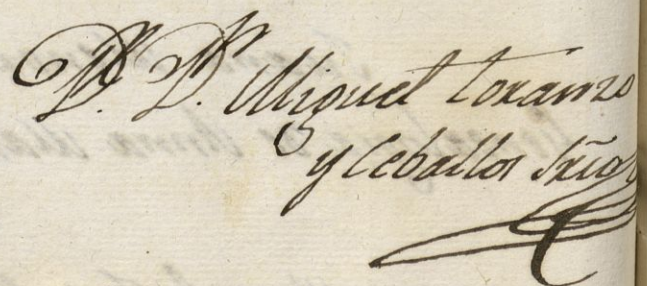 Dr. Dn. Miguel Toranzo
y Ceballos Srio